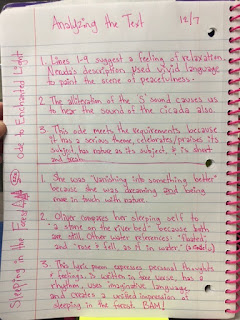 Analyzing the Text
12/7
Ode to Enchanted Light
1. Lines 1-9 suggest a feeling of relaxation.
Neruda's description used vivid language
to paint the scene of peacefulness.
2. The alliteration of the "s" sound causes us
to hear the sound of the cicada also.
3. This ode meets the requirements because
it has a serious theme, celebrates/praises its
subject, has nature as its subject, & is short
and
Sleeping in the Forest
1. She was "vanishing into something better"
because she was dreaming and being
more in touch with nature.
2. Oliver compares her sleeping self to
"a stone on the riverbed" because both
are still. Other water references: "floated"
and "rose & fell, as if in water"
3. This lyric poem expresses personal thoughts
& feelings, is written in free verse, has a
rhythm, uses imaginative language,
and creates a unified impression of
sleeping in the forest. BAM!